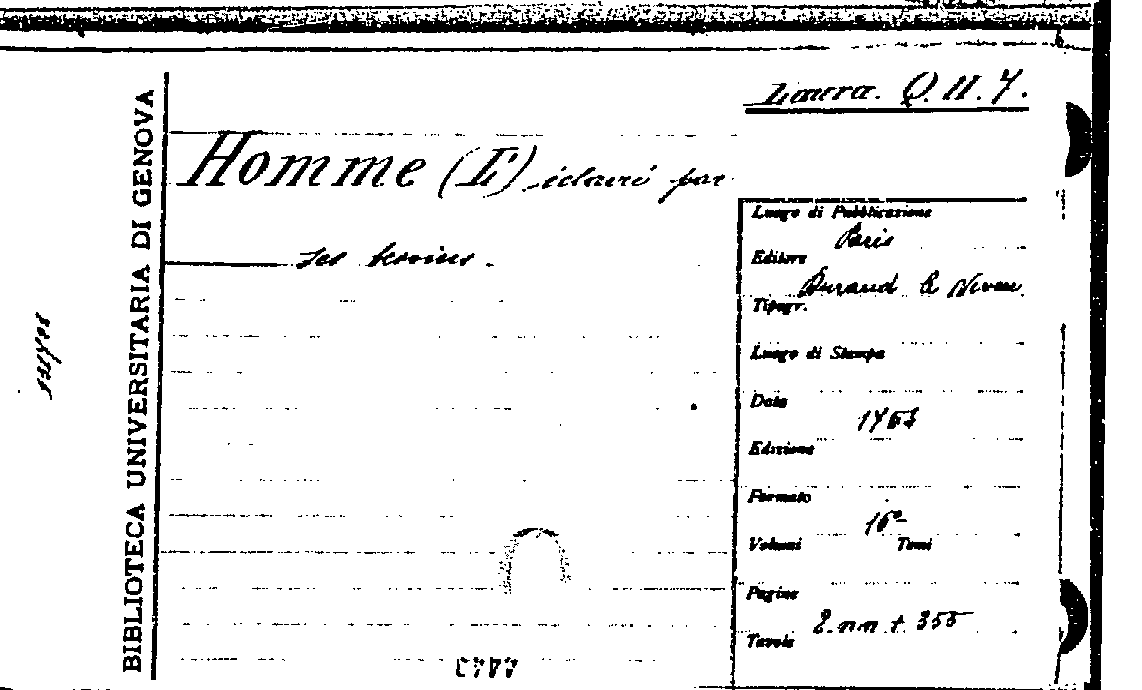 Laura. Q. II. 7.
Homme (L') éclairé par
ses besoins.
BIBLIOTECA UNIVERSITARIA DI GENOVA
Luogo di Pubblicazione
Paris
Editore
Durand & Nyon
Tipogr.
Luogo di Stampa
Data
Edizione
Formato
16°
Volumi Tomi
Pagine
2 nn + 355
Tavole